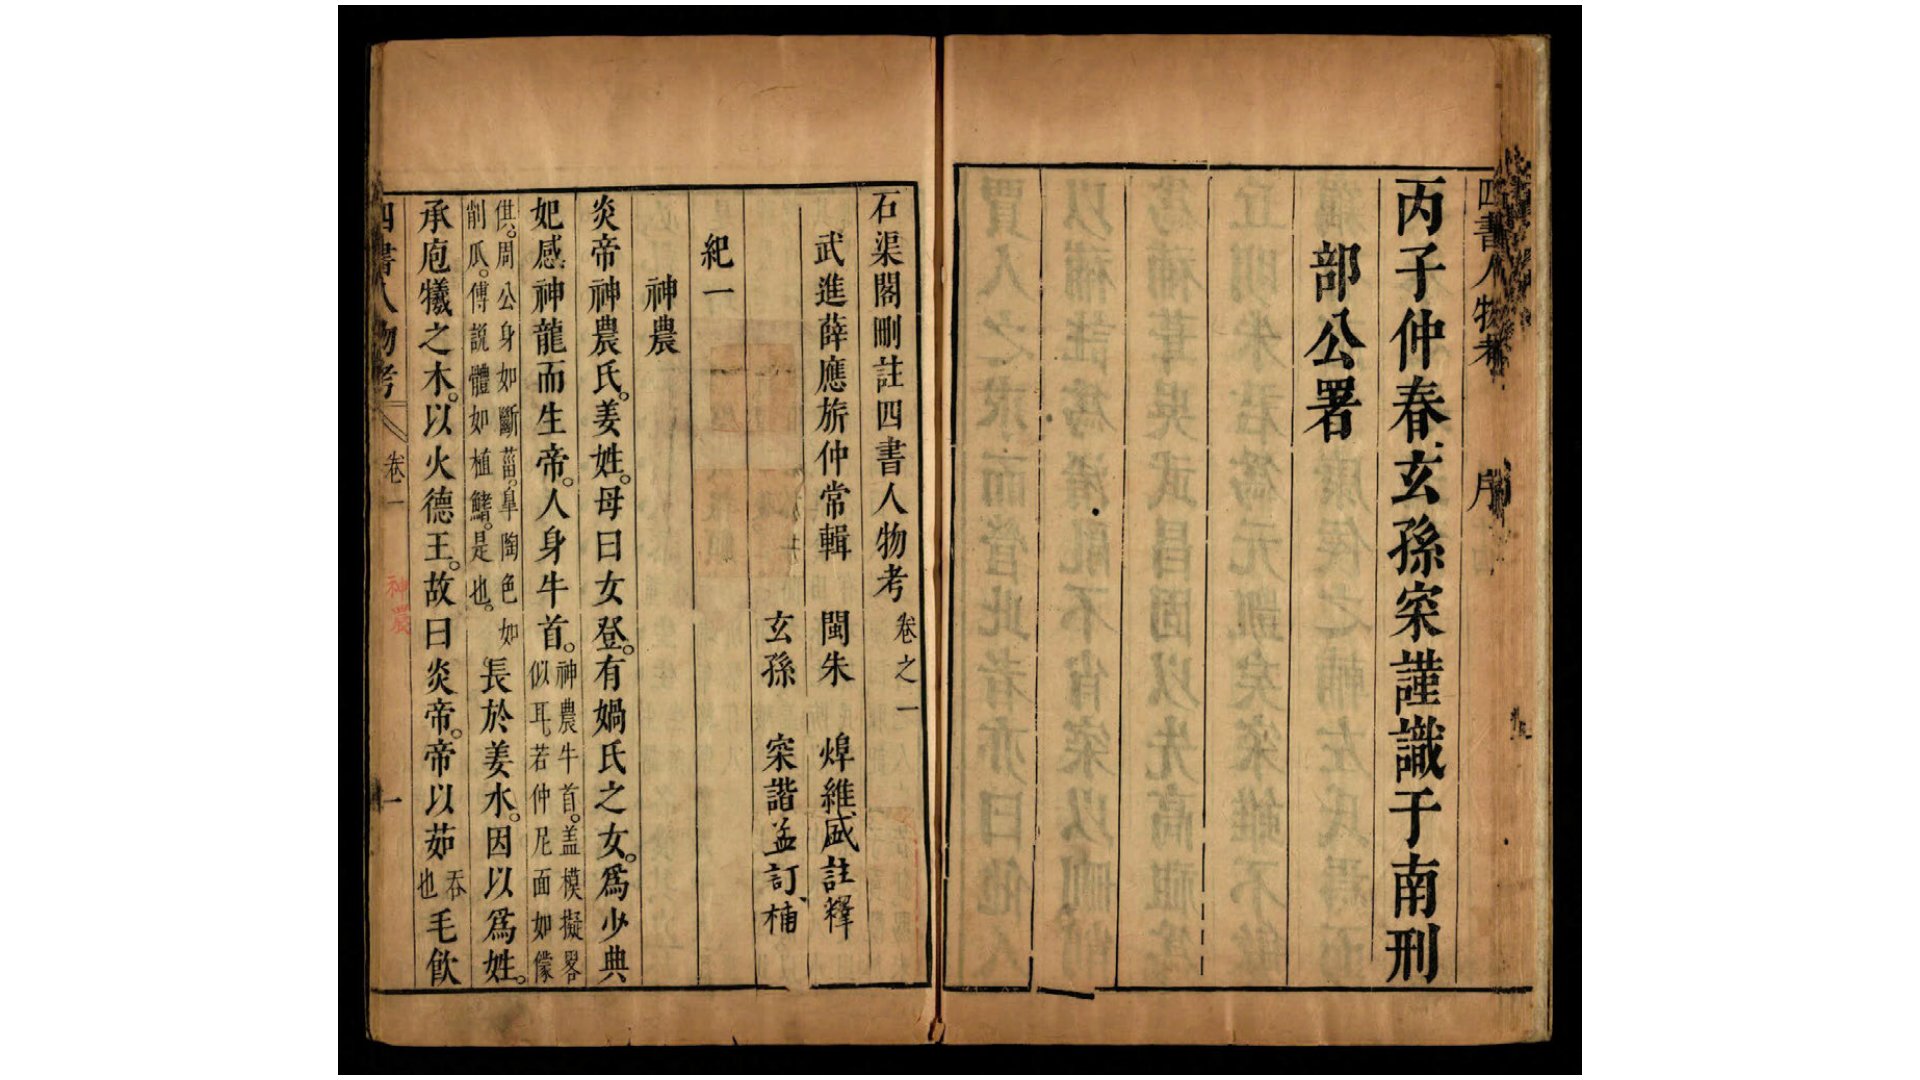 四書人物考
序
丙子仲春玄孫寀謹識于南刑
部公署
石渠閣刪註四書人物考 卷之一
武進薛應旂仲常輯 閩朱 焯維盛註釋
玄孫 寀諧孟訂補
紀一
神農
炎帝神農氏。姜姓。母曰女登。有媧氏之女。爲少典
妃感神龍而生帝。人身牛首。神農牛首。盖模擬畧似耳若仲尼面如儻
供。周公身如斷菑。皐陶色如削瓜。傅説體如植鰭。是也。長於姜水。因以爲姓。
承庖犧之木。以火德王。故曰炎帝。帝以茹吞也毛飲
四書人物考 卷一 一
神農